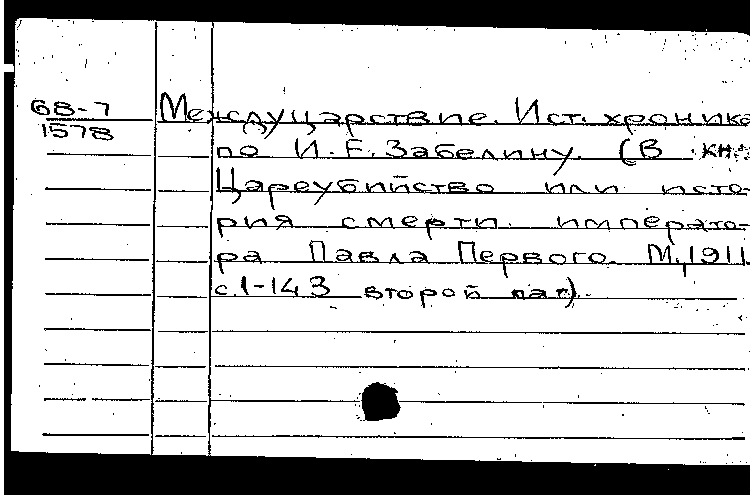 68-7 Междуцарствие. Ист. хроника
1578
по И.Е. Забелину. (В кн.:
Цареубийство или исто-
рия смерти императо-
ра Павла Первого. М., 1911.
с.1-143 второй паг).